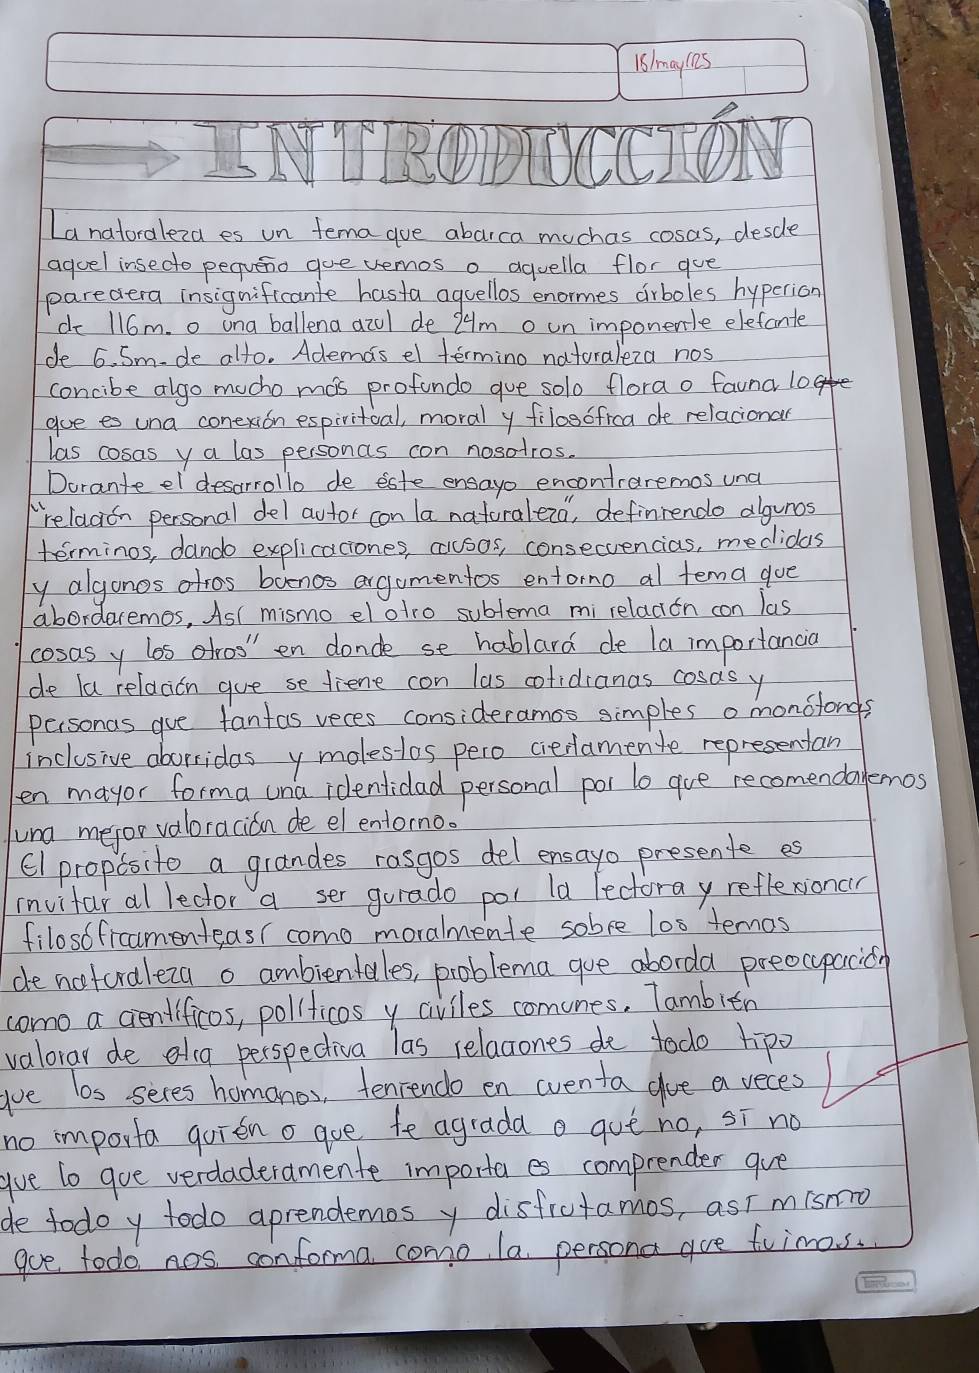 18/may/25
INTRODUCCIÓN
La naturaleza es un tema que abarca muchas cosas, desde
aquel insecto pequeño que vemos o aquella flor que
pareciera insignificante hasta aquellos enormes árboles hyperion
de 116m. o una ballena azul de 24m o un imponente elefante
de 6.5m. de alto. Además el término naturaleza nos
concibe algo mucho más profundo que solo flora o fauna lo que
que es una conexión espiritual, moral y filosófica de relacionar
las cosas y a las personas con nosotros.
Durante el desarrollo de éste ensayo encontraremos una
"relación personal del autor con la naturaleza", definiendo algunos
términos, dando explicaciones, causas, consecuencias, medidas
y algunos otros buenos argumentos entorno al tema que
abordaremos, Así mismo el otro subtema mi relación con las
cosas y los otros" en donde se hablará de la importancia
de la relación que se tiene con las cotidianas cosas y
personas que tantas veces consideramos simples o monótonas
inclusive aburridas y molestas pero ciertamente representan
en mayor forma una identidad personal por lo que recomendaremos
una mejor valoración de el entorno.
El propósito a grandes rasgos del ensayo presente es
invitar al lector a ser guiado por la lectura y reflexionar
filosóficamente así como moralmente sobre los temas
de naturaleza o ambientales, problema que aborda preocupación
como a científicos, políticos y civiles comunes. También
valorar de otra perspectiva las relaciones de todo tipo
que los seres humanos, teniendo en cuenta que a veces
no importa quién o que te agrada o qué no, si no
que lo que verdaderamente importa es comprender que
de todo y todo aprendemos y disfrutamos, así mismo
que todo nos conforma como la persona que fuimos..